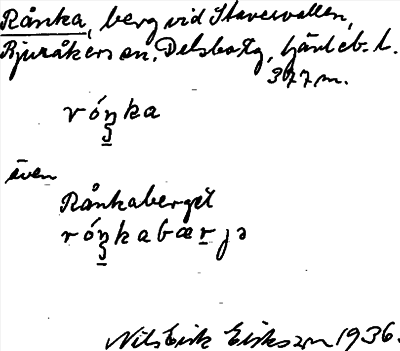 Rånka, berg vid Stavesvallen,
Bjuråkers sn. Delsbotg,
377 m.
rón̠ka
även
Rånkaberget
rón̠kabær̠jə
Nils Erik Eriksson 1936.